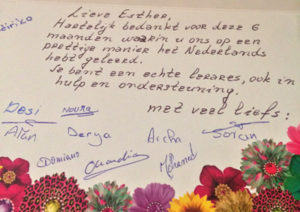 Lieve Esther,
Hartelijk bedankt voor deze 6
maanden waarin u ons op een
prettige manier het Nederlands
hebt geleerd.
Je bent een echte lerares, ook in
hulp en ondersteuning.
met veel liefs:
Desi Noura
Altun Derya Aicha
Domiano Claudia Mohamed